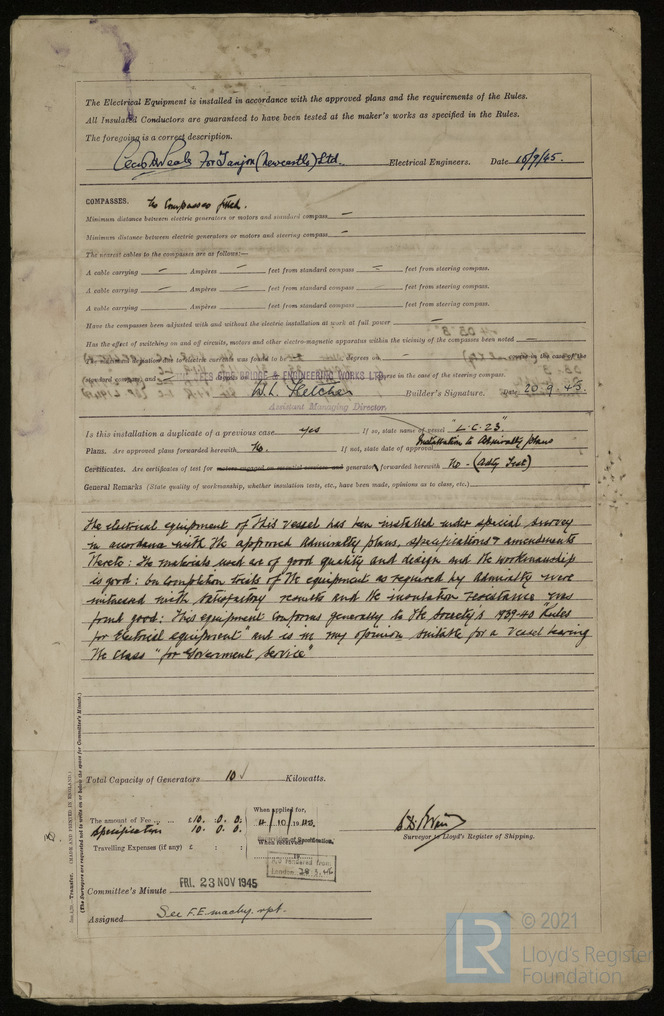 The Electrical Equipment is installed in accordance with the approved plans and the requirements of the Rules.
All Insulated Conductors are guaranteed to have been tested at the maker's works as specified in the Rules.
The foregoing is a correct description.
For Tanjon (Newcastle) Ltd. Electrical Engineers. Date 10/9/45.
COMPASSES. No Compasses fitted.
Minimum distance between electric generators or motors and standard compass —
Minimum distance between electric generators or motors and steering compass —
The nearest cables to the compasses are as follows:—
A cable carrying — Ampères — feet from standard compass — feet from steering compass.
A cable carrying — Ampères — feet from standard compass — feet from steering compass.
A cable carrying — Ampères — feet from standard compass — feet from steering compass.
Have the compasses been adjusted with and without the electric installation at work at full power —
Has the effect of switching on and off circuits, motors and other electro-magnetic apparatus within the vicinity of the compasses been noted —
The maximum deviation due to electric current was found to be degrees on course in the case of the
standard compass, and degrees on course in the case of the steering compass.
BRIDGE & ENGINEERING WORKS LTD.
W. L. Fletcher Builder's Signature. Date 20.9.45.
Assistant Managing Director.
Is this installation a duplicate of a previous case yes If so, state name of vessel "L.C. 23".
Installation to Admiralty plans
Plans. Are approved plans forwarded herewith No. If not, state date of approval
Certificates. Are certificates of test for motors engaged on essential services and generators forwarded herewith No - (Adty Test)
General Remarks (State quality of workmanship, whether insulation tests, etc., have been made, opinions as to class, etc.)
The electrical equipment of this vessel has been installed under special survey
in accordance with the approved Admiralty plans, specifications & amendments
thereto: The materials used are of good quality and design and the workmanship
is good: On completion trials of the equipment as required by Admiralty were
witnessed with satisfactory results and the insulation resistance was
found good: This equipment conforms generally to the Society's 1939-40 "Rules
for Electrical equipment" and is in my opinion suitable for a vessel bearing
the class "for Goverment Service"
Total Capacity of Generators 10 ✓ Kilowatts.
The amount of Fee £10 : 0 : 0.
Specification 10. 0. 0.
Travelling Expenses (if any) £ : :
When applied for,
4/10/1945.
When received,
Surveyor to Lloyd's Register of Shipping.
A/c rendered from
London 28.3.46
Committee's Minute FRI. 23 NOV 1945
Assigned See F.E. machy. rpt.
Transfer. (MADE AND PRINTED IN ENGLAND.)
(The Surveyors are requested not to write on or below the space for Committee's Minute.)
LR
© 2021
Lloyd's Register
Foundation